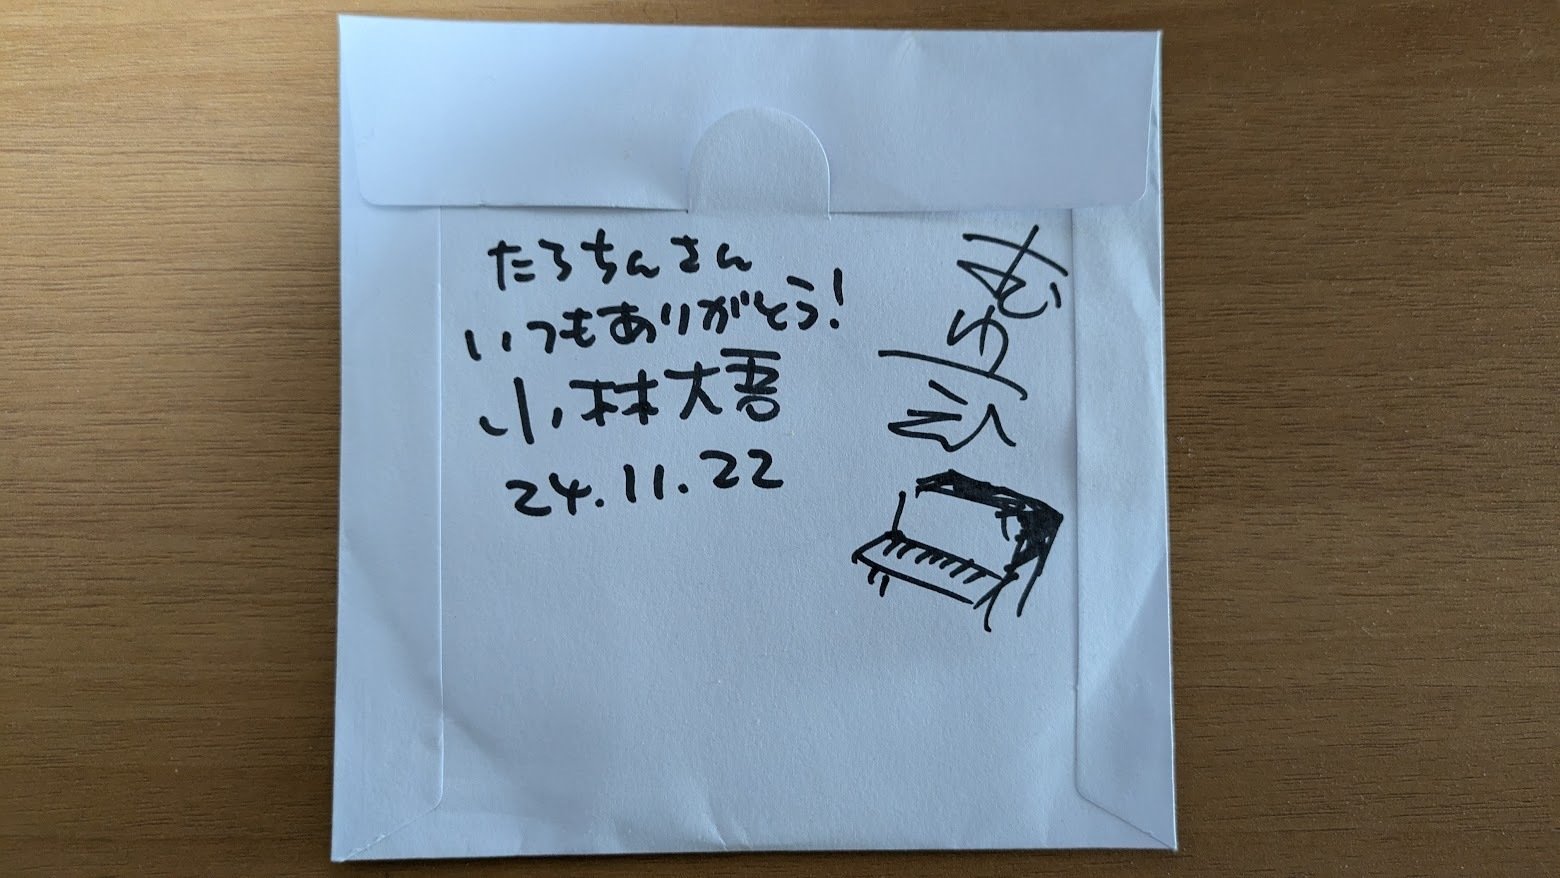 たろちんさん
いつもありがとう!
小林大吾
24.11.22